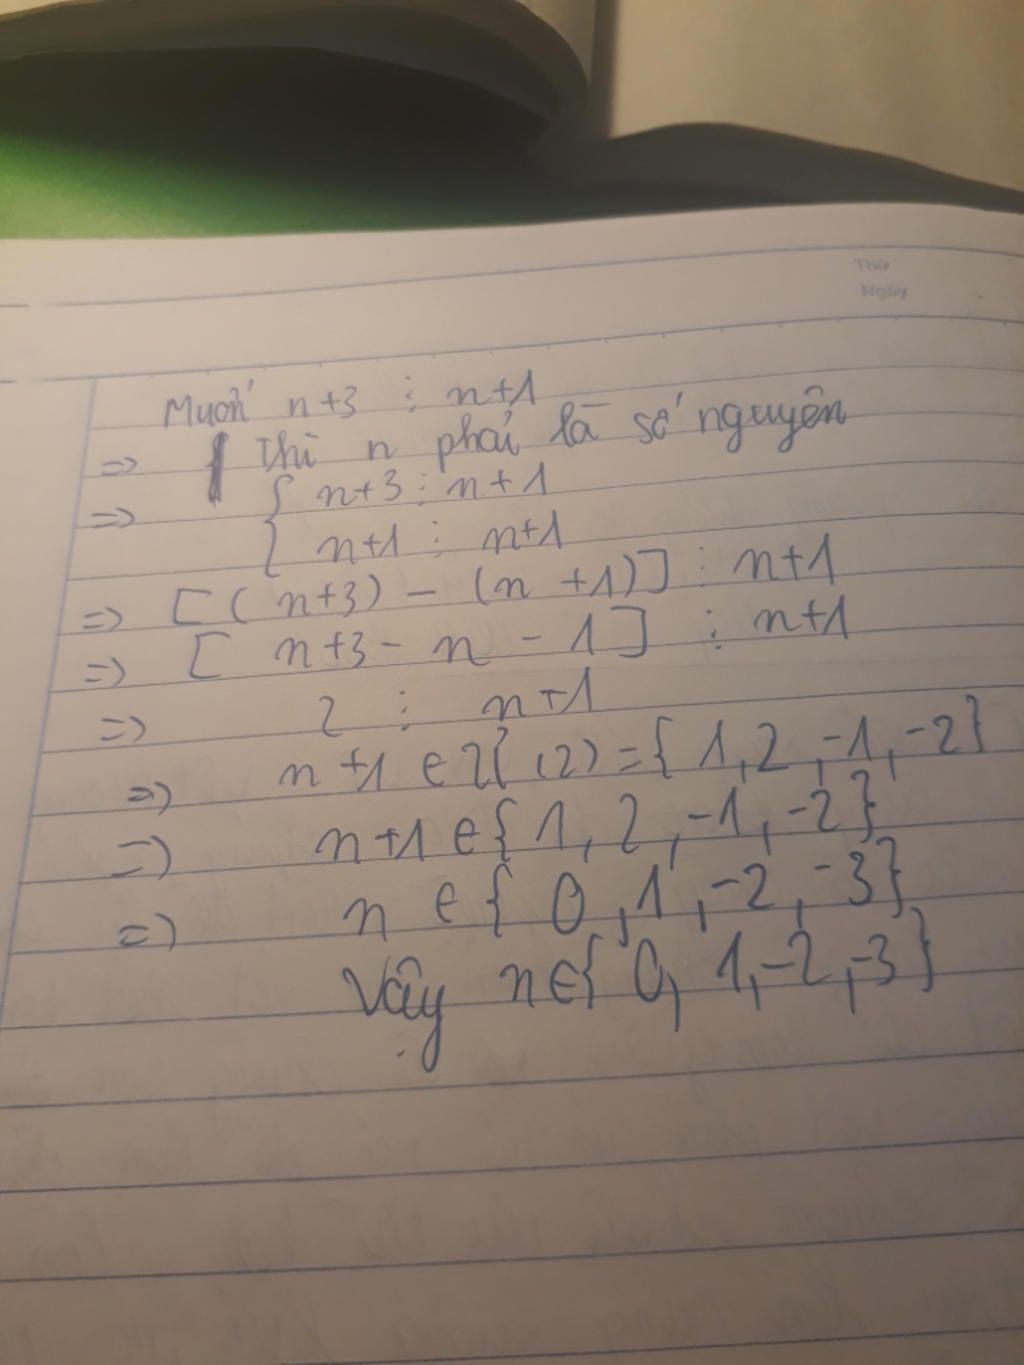 Thứ
Ngày
Muốn n+3 ⋮ n+1
=> thì n phải là số nguyên
=> { n+3 ⋮ n+1
n+1 ⋮ n+1
=> [(n+3) - (n+1)] ⋮ n+1
=> [n+3 - n - 1] ⋮ n+1
=> 2 ⋮ n+1
=> n+1 ∈ Ư(2) = {1, 2, -1, -2}
=> n+1 ∈ {1, 2, -1, -2}
=> n ∈ {0, 1, -2, -3}
Vậy n ∈ {0, 1, -2, -3}